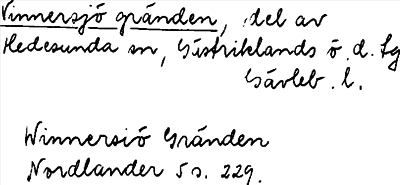 Vinnersjö gränden, del av
Hedesunda sn, Gästriklands ö. d. tg
Gävleb. l.
Winnersiö Gränden
Nordlander 5 s. 229.